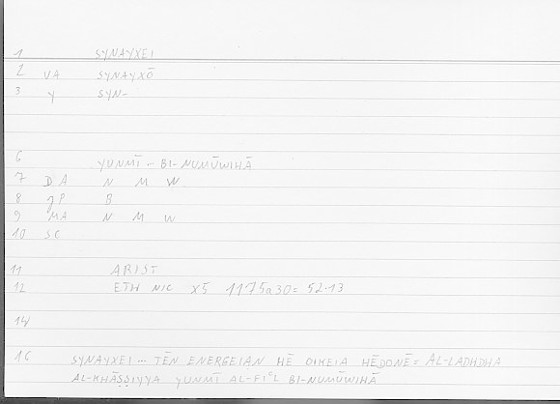 1 SYNAYXEI
2 VA SYNAYXŌ
3 Y SYN-
6 YUNMĪ - BI-NUMŪWIHĀ
7 DA N M W
8 JP B
9 MA N M W
10 SC
11 ARIST
12 ETH NIC X5 1175a30 = 52.13
14
16 SYNAYXEI... TĒN ENERGEIAN HĒ OIKEIA HĒDONĒ = AL-LADHDHA
AL-KHĀṢṢIYYA YUNMĪ AL-FIʿL BI-NUMŪWIHĀ